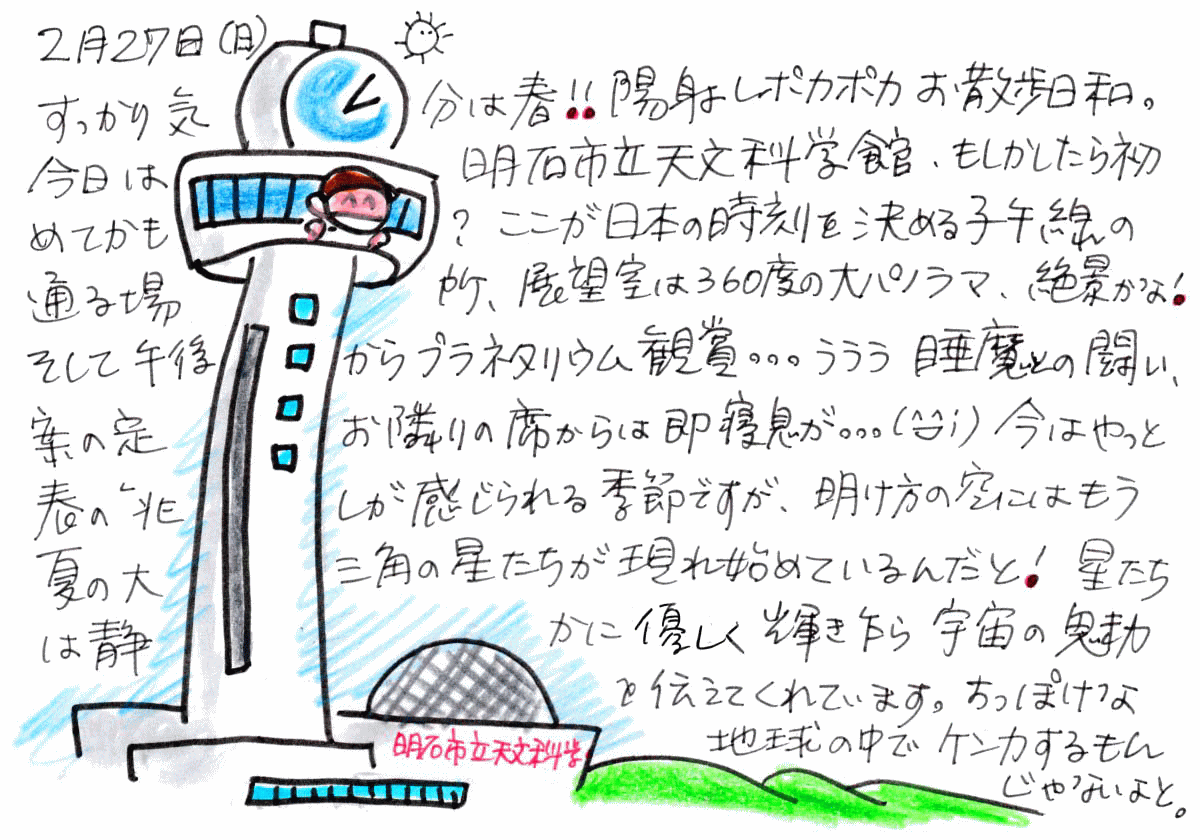 2月27日(日)
すっかり気分は春!! 陽射しポカポカお散歩日和。
今日は明石市立天文科学館、もしかしたら初
めてかも? ここが日本の時刻を決める子午線の
通る場所、展望室は360度の大パノラマ、絶景かな!
そして午後からプラネタリウム観賞。。。ううう 睡魔との闘い、
案の定お隣りの席からは即寝息が。。。(^^;) 今はやっと
春の兆しが感じられる季節ですが、明け方の空にはもう
夏の大三角の星たちが現れ始めているんだと! 星たち
は静かに優しく輝き乍ら宇宙の魅力
を伝えてくれています。ちっぽけな
地球の中でケンカするもん
じゃないよと。
明石市立天文科学